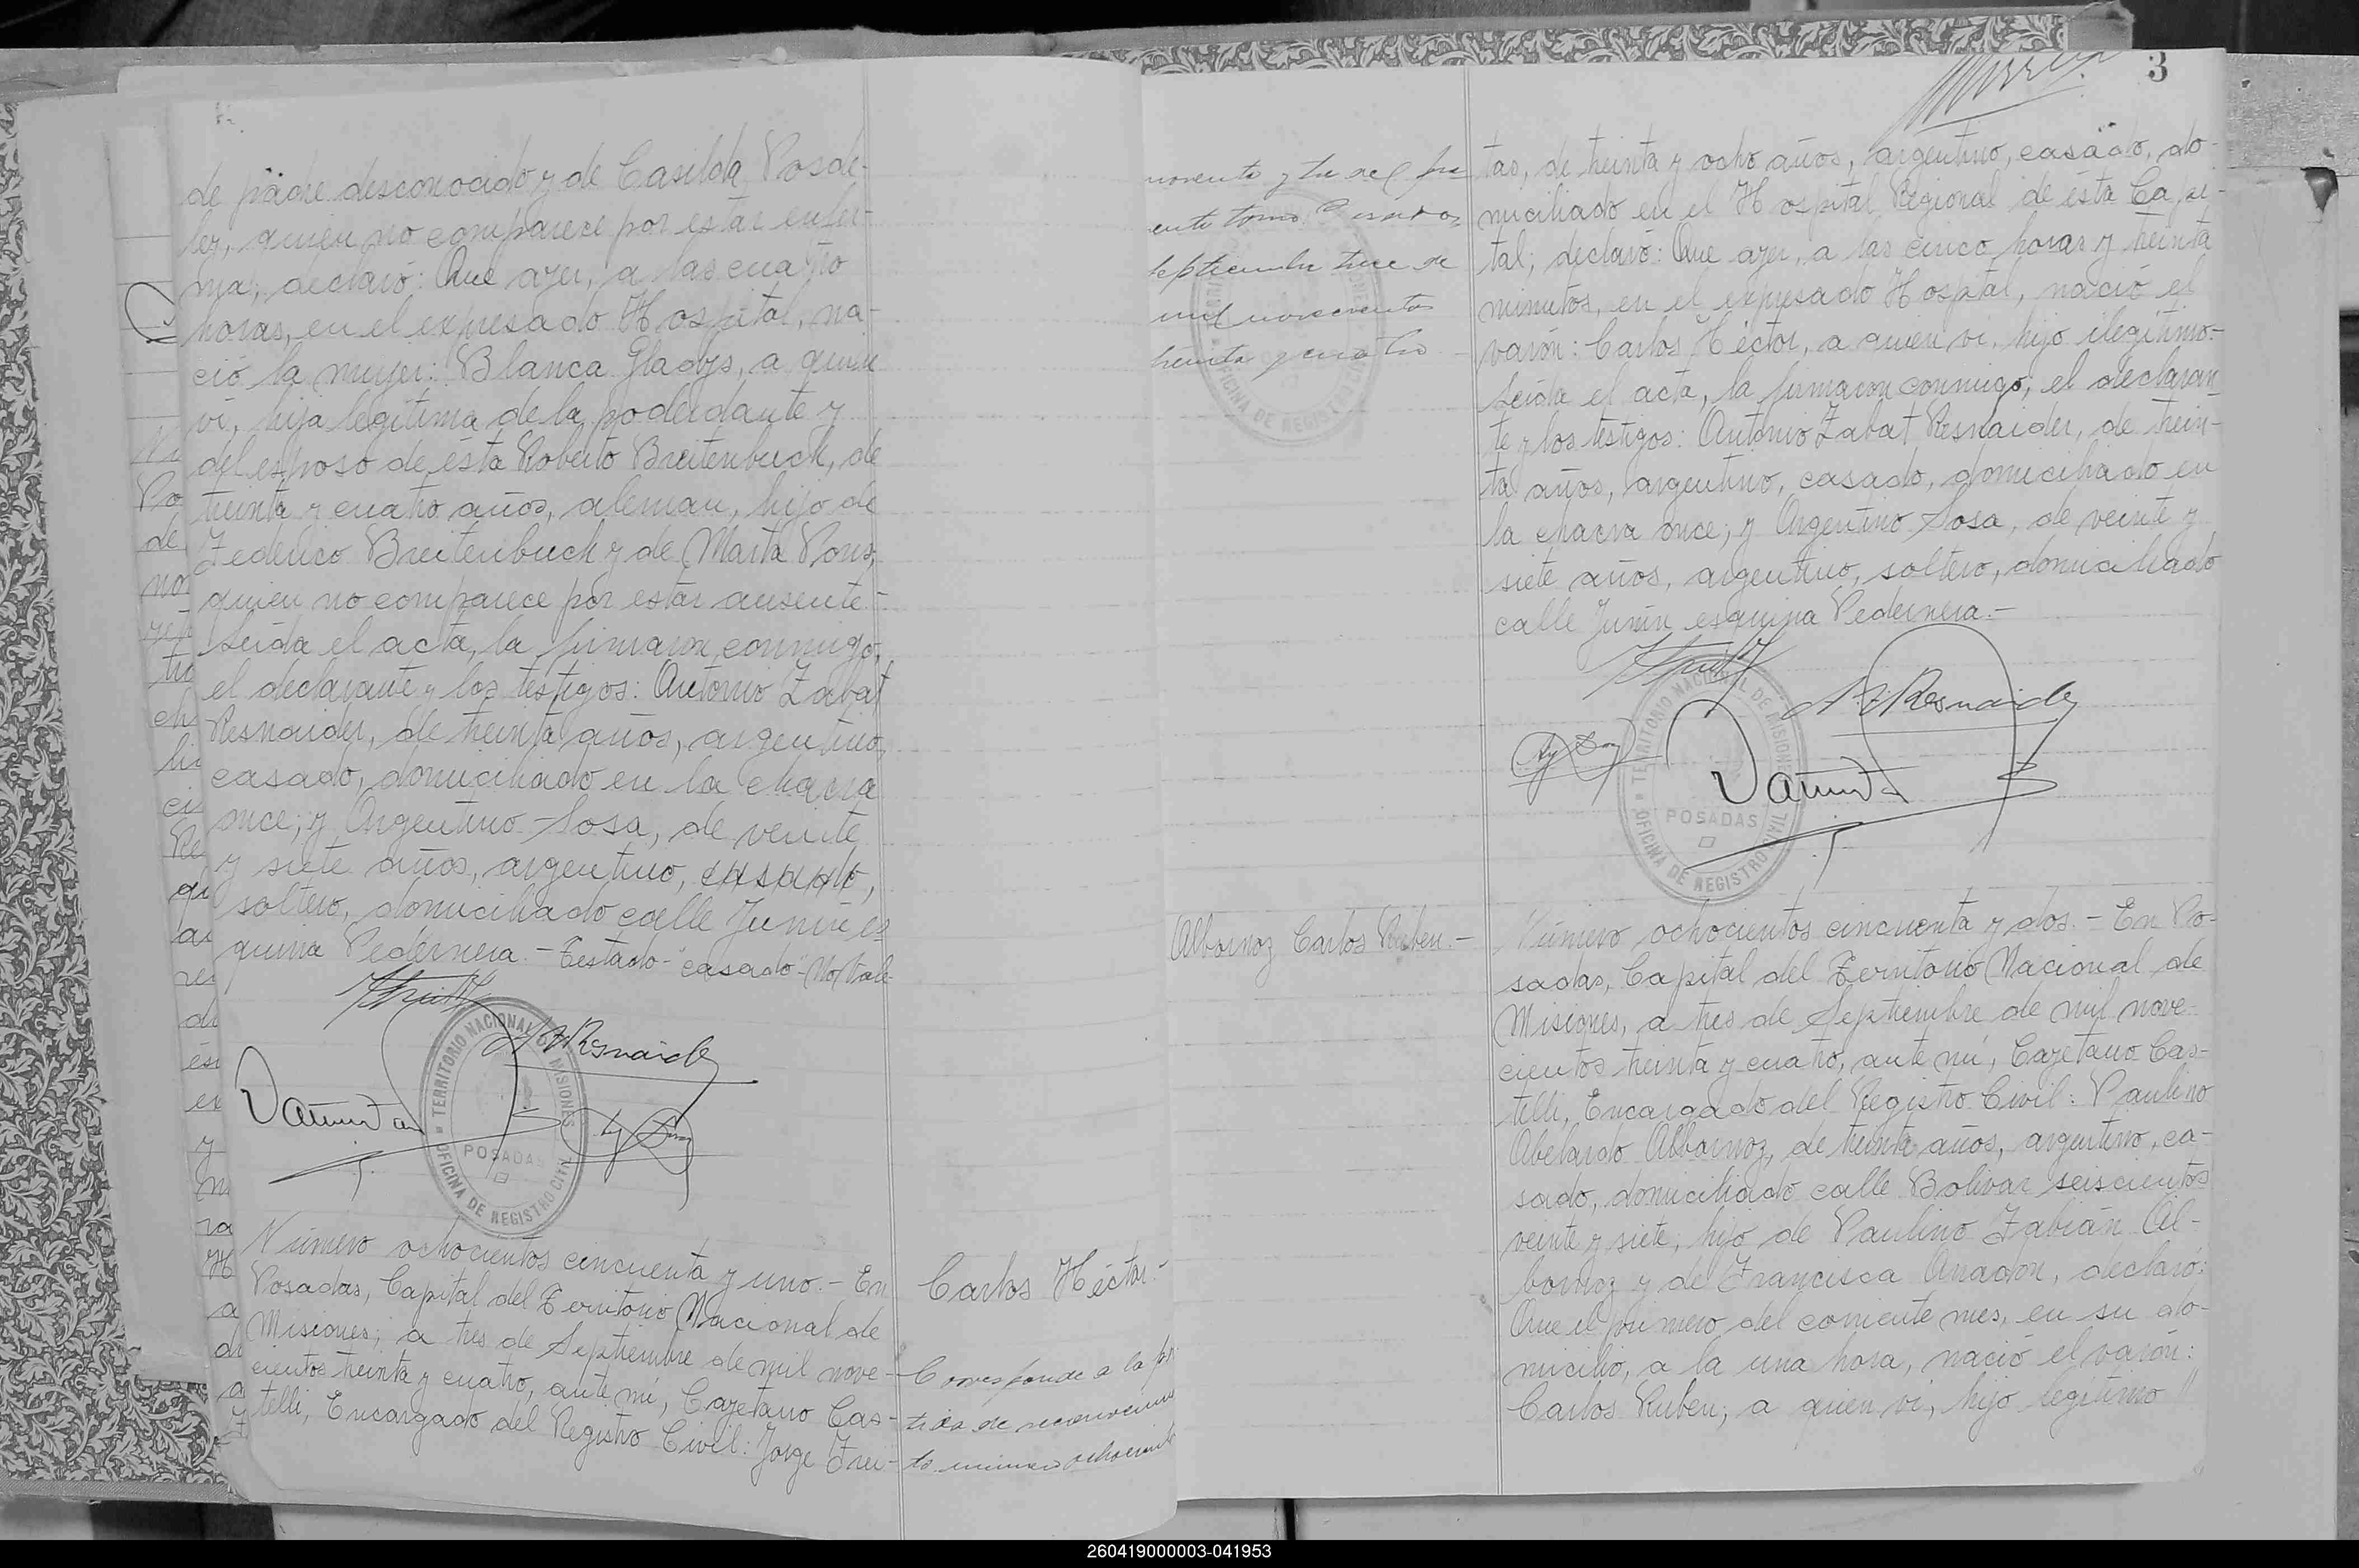 de padre desconocido y de Casilda Posde-
ler, quien no comparece por estar enfer-
ma, declaró: Que ayer, a las cuatro
horas, en el expresado Hospital, na-
ció la mujer: Blanca Gladys, a quien
vi, hija legítima de la poderdante y
del esposo de ésta Roberto Breitenbuch, de
treinta y cuatro años, aleman, hijo de
Federico Breitenbuch y de Marta Pons,
quien no comparece por estar ausente.-
Leída el acta, la firmaron conmigo,
el declarante y los testigos: Antonio Zabat
Resnaider, de treinta años, argentino,
casado, domiciliado en la chacra
once; y Argentino Sosa, de veinte
y siete años, argentino, casado,
soltero, domiciliado calle Junín es
quina Pedernera.- Testado-"casado"-No Vale
A Z Resnaider
TERRITORIO NACIONAL DE MISIONES
POSADAS
OFICINA DE REGISTRO CIVIL
Número ochocientos cincuenta y uno.- En
Posadas, Capital del Territorio Nacional de
Misiones, a tres de Septiembre de mil nove-
cientos treinta y cuatro, ante mí, Cayetano Cas-
telli, Encargado del Registro Civil: Jorge Frei-
Carlos Héctor.-
Corresponde a la par
tida de reconocimien
to número ochocientos
3
noventa y tres del pre
ente tomo. Posadas,
septiembre trece de
mil novecientos
treinta y cuatro
OFICINA DE REGISTRO CIVIL
tas, de treinta y ocho años, argentino, casado, do-
miciliado en el Hospital Regional de ésta Capi-
tal, declaró: Que ayer, a las cinco horas y treinta
minutos, en el expresado Hospital, nació el
varón: Carlos Héctor, a quien vi, hijo ilegítimo.-
Leída el acta, la firmaron conmigo, el declaran
te y los testigos: Antonio Zabat Resnaider, de trein-
ta años, argentino, casado, domiciliado en
la chacra once; y Argentino Sosa, de veinte y
siete años, argentino, soltero, domiciliado
calle Junín esquina Pedernera.-
A Z Resnaider
TERRITORIO NACIONAL DE MISIONES
POSADAS
OFICINA DE REGISTRO CIVIL
Albornoz Carlos Ruben.-
Número ochocientos cincuenta y dos.- En Po-
sadas, Capital del Territorio Nacional de
Misiones, a tres de Septiembre de mil nove-
cientos treinta y cuatro, ante mí, Cayetano Cas-
telli, Encargado del Registro Civil: Paulino
Abelardo Albornoz, de treinta años, argentino, ca-
sado, domiciliado calle Bolivar seiscientos
veinte y siete, hijo de Paulino Fabián Al-
bornoz y de Francisca Anadón, declaró:
Que el primero del corriente mes, en su do-
micilio, a la una hora, nació el varón:
Carlos Ruben, a quien vi, hijo legítimo
260419000003-041953